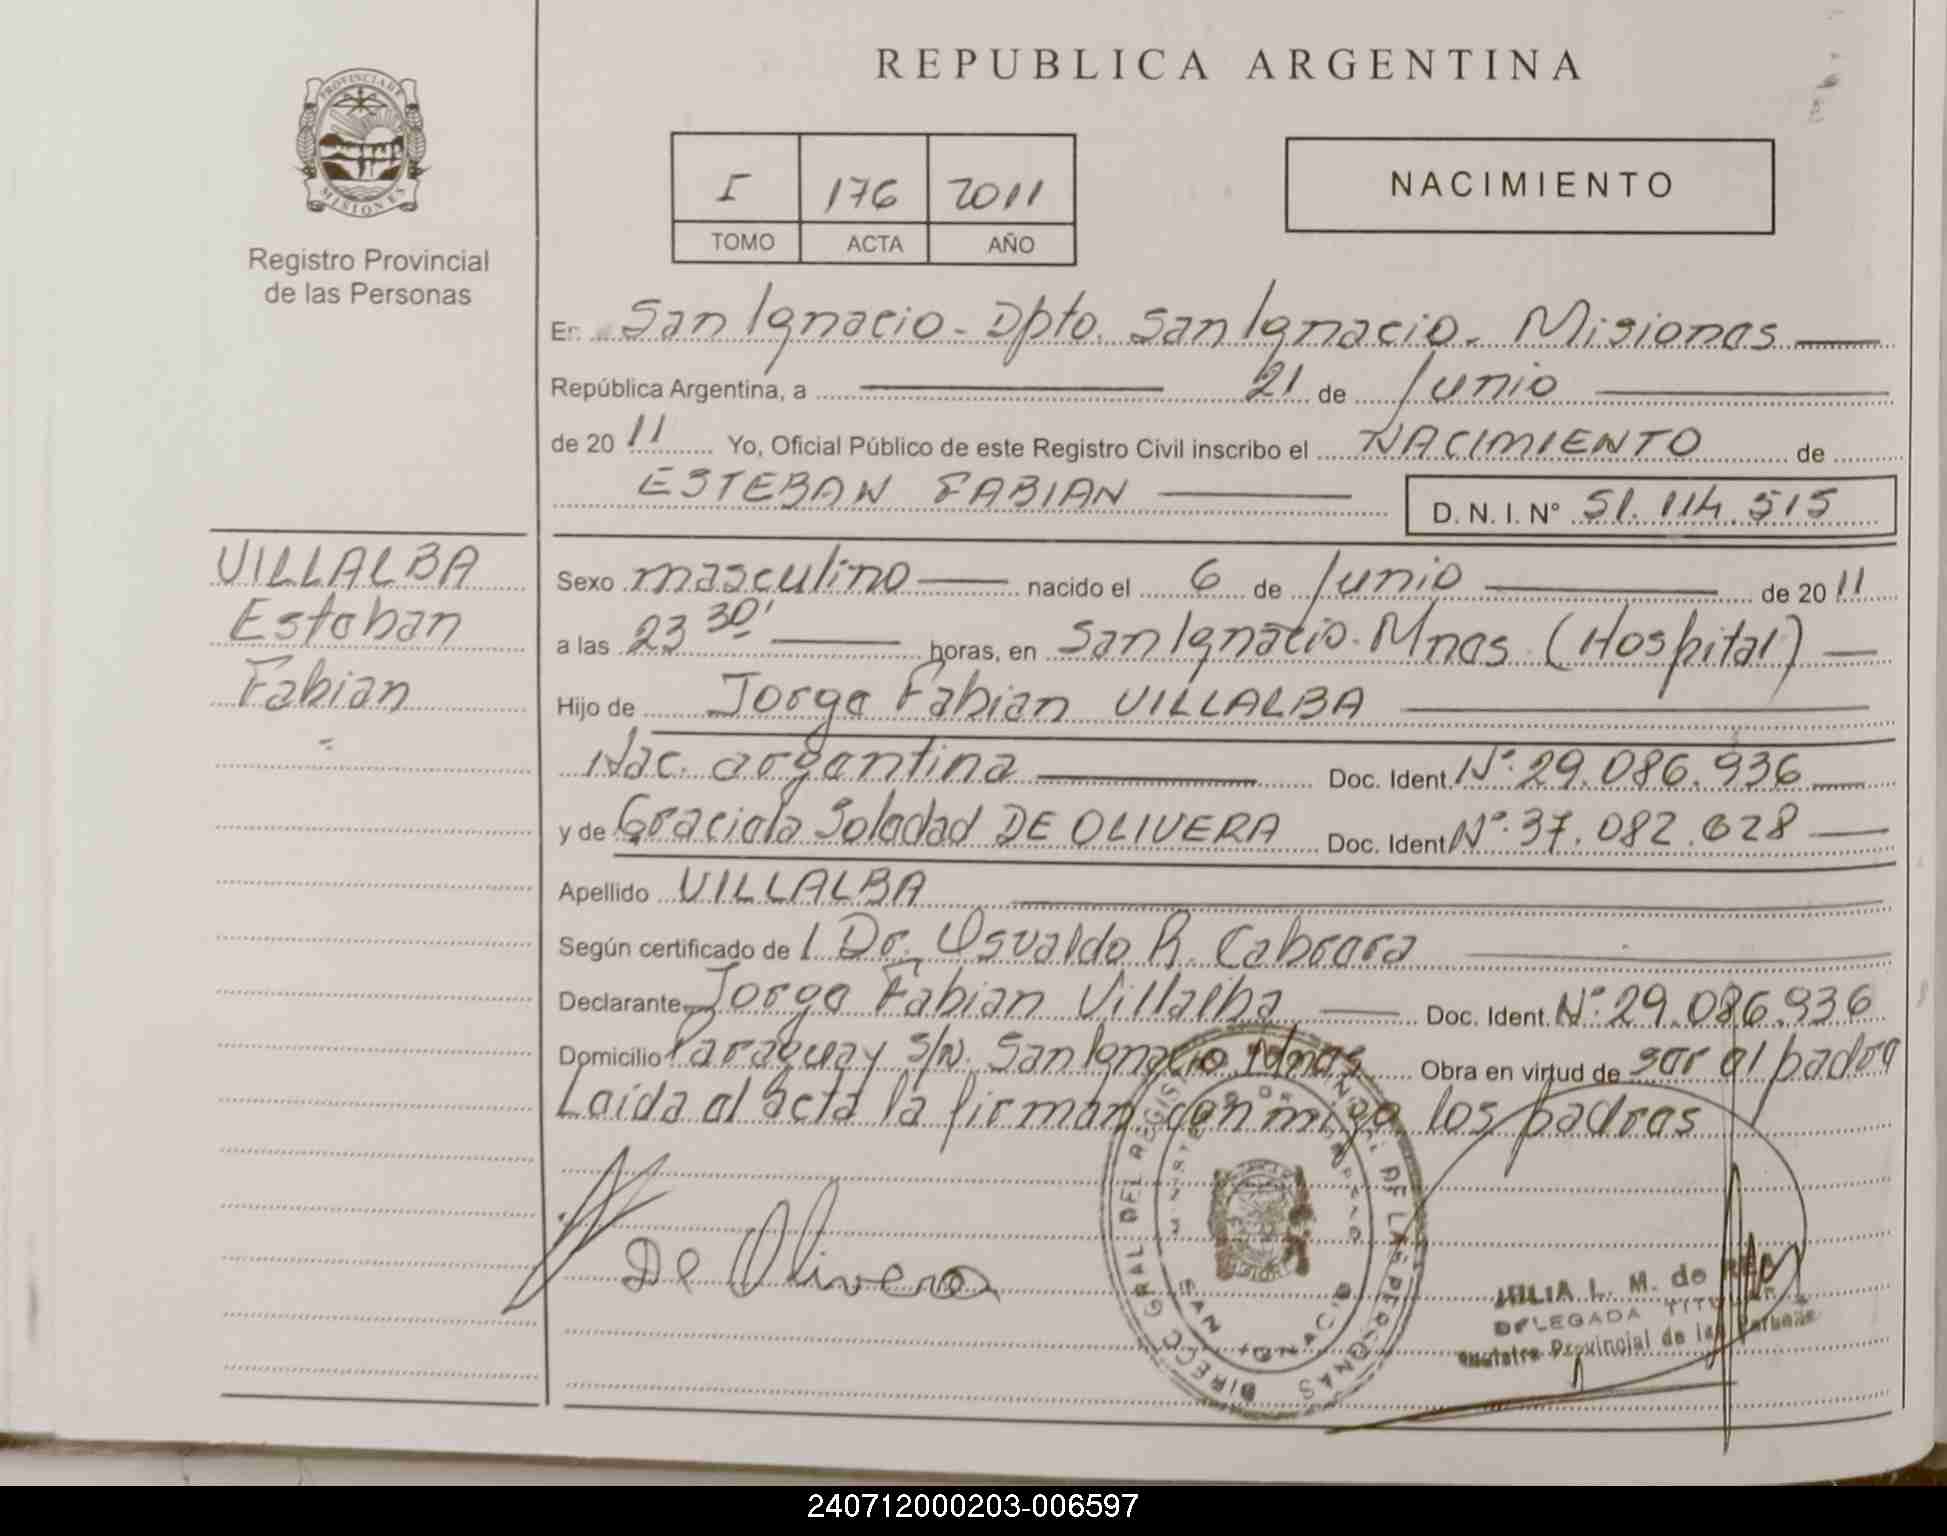 REPUBLICA ARGENTINA
PROVINCIA DE
MISIONES
Registro Provincial
de las Personas
I 176 2011
TOMO ACTA AÑO
NACIMIENTO
En San Ignacio - Dpto. San Ignacio - Misiones
República Argentina, a 21 de Junio
de 2011 Yo, Oficial Público de este Registro Civil inscribo el NACIMIENTO de
ESTEBAN FABIAN D. N. I. N° 51.114.515
VILLALBA
Esteban
Fabian
Sexo masculino nacido el 6 de Junio de 2011
a las 23 30' horas, en San Ignacio - Mnes (Hospital)
Hijo de Jorge Fabian VILLALBA
Nac. argentina Doc. Ident. N°. 29.086.936
y de Graciela Soledad DE OLIVERA Doc. Ident. N°. 37.082.628
Apellido VILLALBA
Según certificado de l Dr. Osvaldo R. Cabrera
Declarante Jorge Fabian Villalba Doc. Ident. N°. 29.086.936
Domicilio Paraguay S/N. San Ignacio Mnes Obra en virtud de ser el padre
Leída el acta la firman conmigo los padres
De Olivera
DIRECC. GRAL DEL REGISTRO DE LAS PERSONAS
SAN IGNACIO
JULIA L. M. de
DELEGADA TITULAR
Registro Provincial de las Personas
240712000203-006597